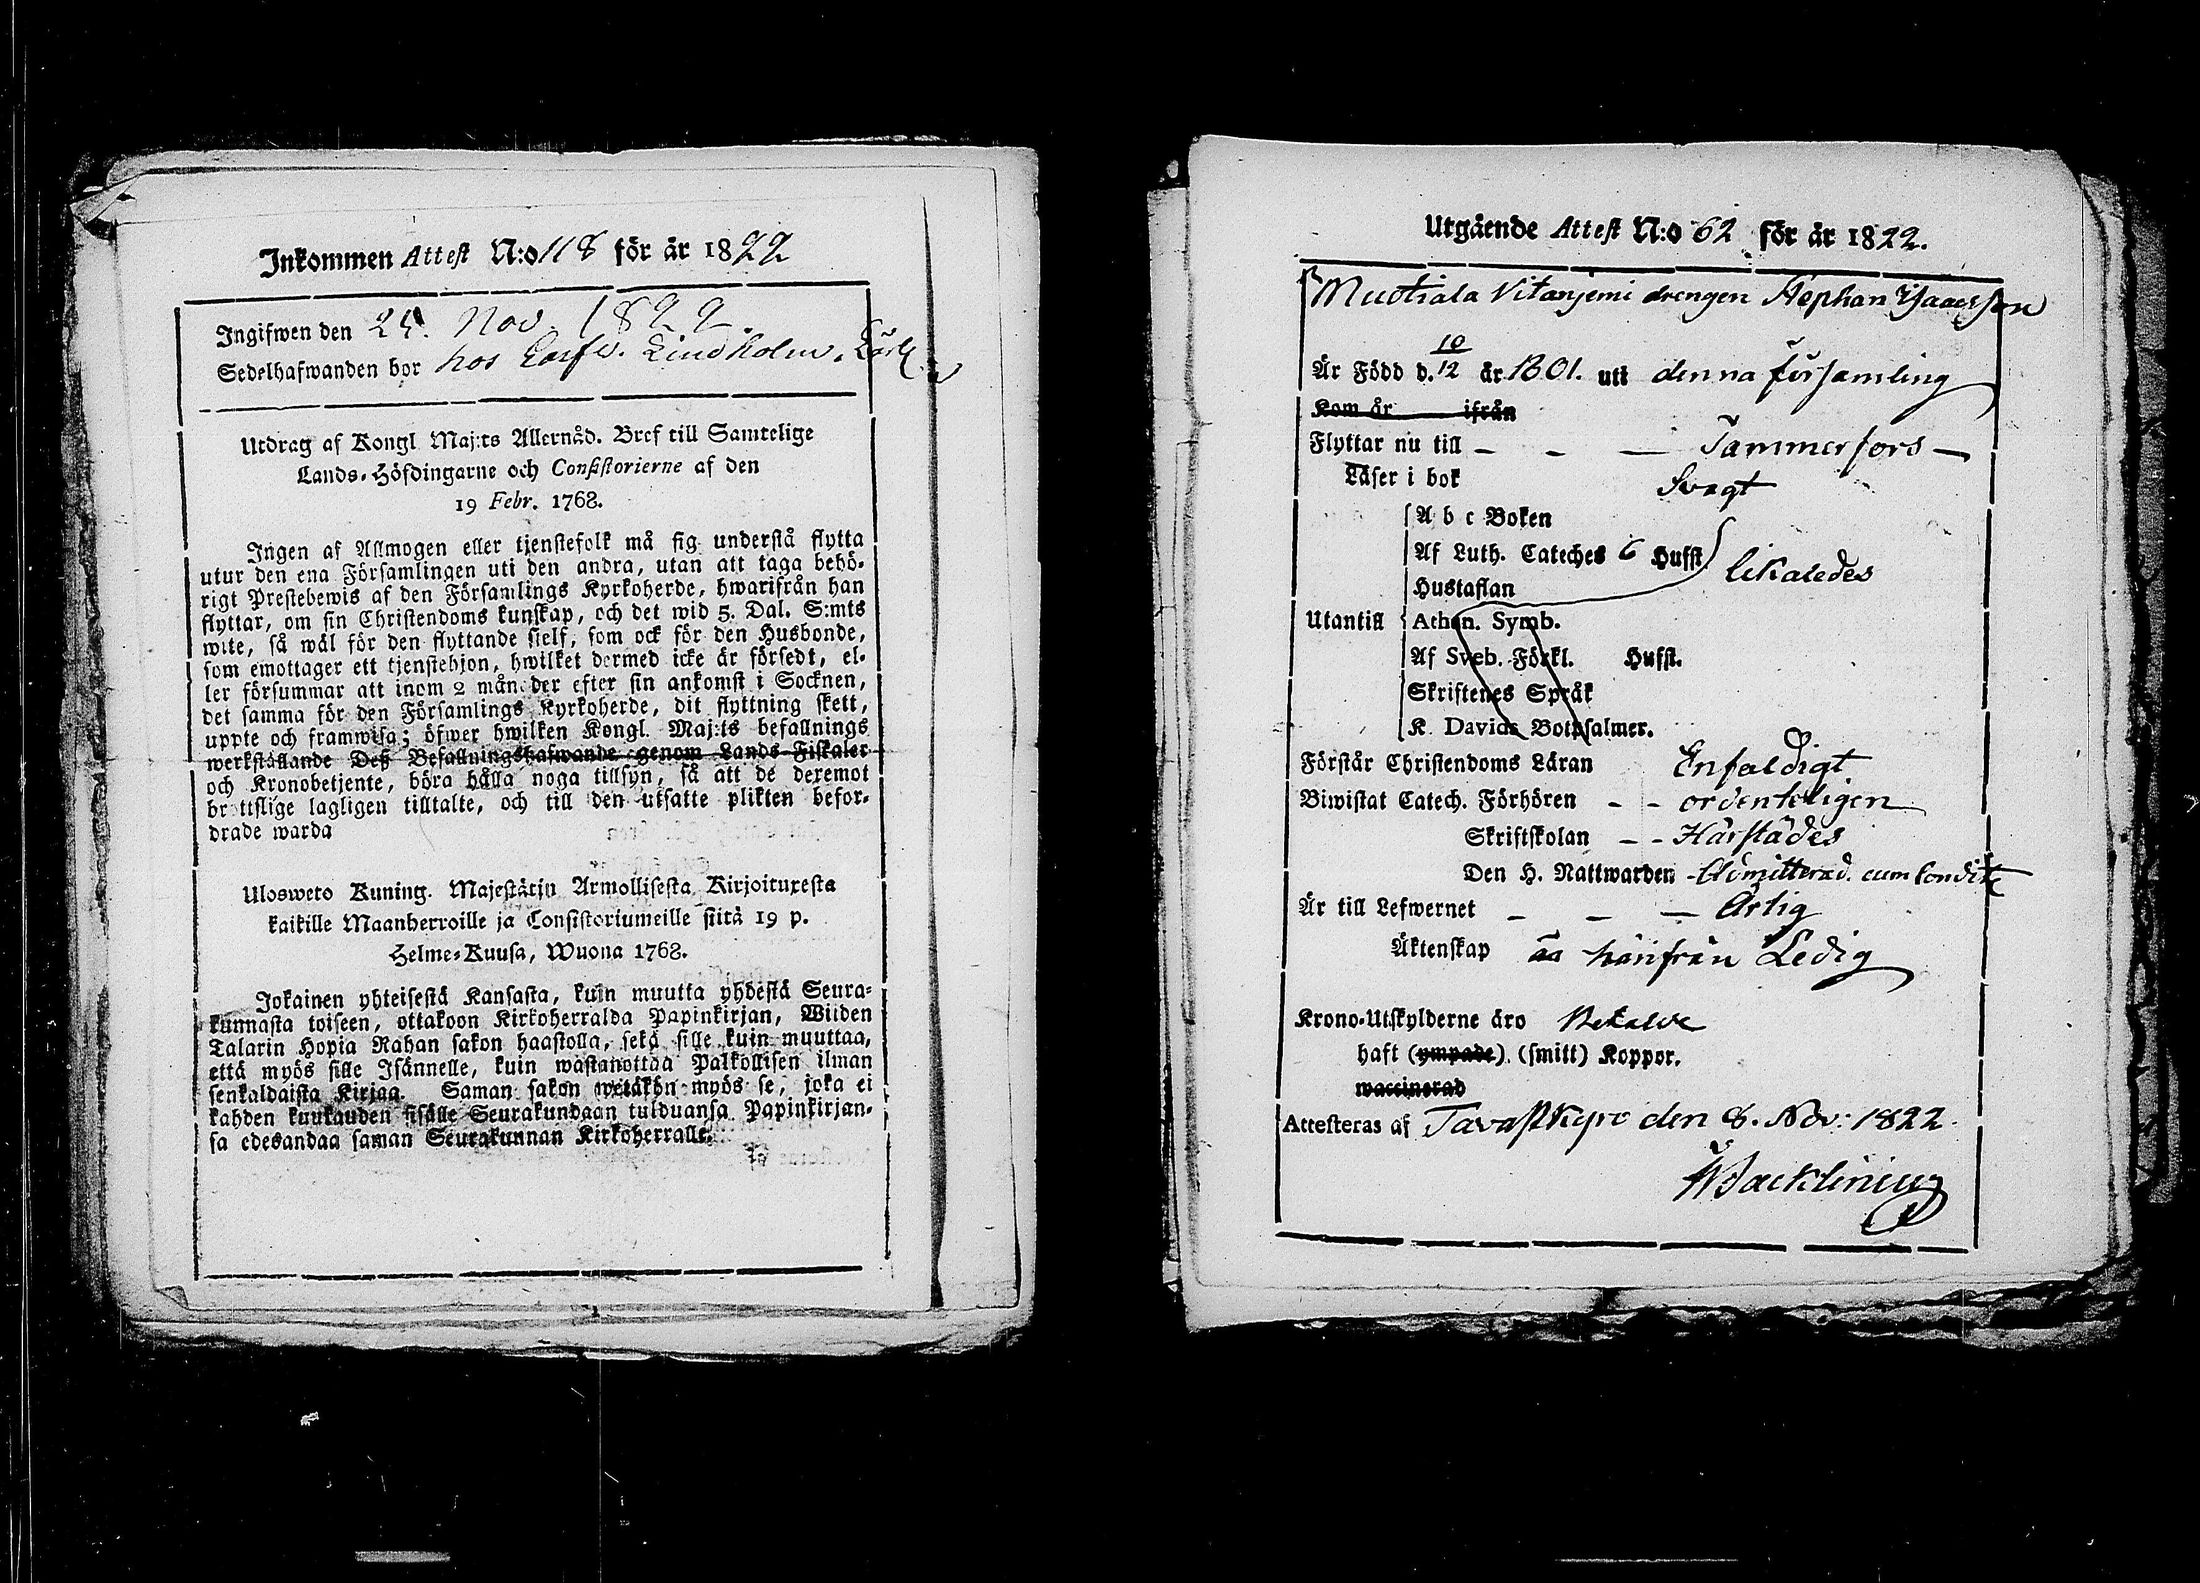 Inkommen Attest N:o 118 för år 1822
Ingifwen den 25. Nov. 1822.
Sedelhafwanden bor hos Garfv. Lindholm. Lärl
Utdrag af Kongl Maj:ts Allernåd. Bref till Samtelige
Lands-Höfdingarne och Consistorierne af den
19 Febr. 1768.
Ingen af Allmogen eller tjenstefolk må sig understå flytta
utur den ena Församlingen uti den andra, utan att taga behö-
rigt Prestebewis af den Församlings Kyrkoherde, hwarifrån han
flyttar, om sin Christendoms kunskap, och det wid 5. Dal. S:mts
wite, så wäl för den flyttande sielf, som ock för den Husbonde,
som emottager ett tjenstehjon, hwilket dermed icke är försedt, el-
ler försummar att inom 2 månader efter sin ankomst i Socknen,
det samma för den Församlings Kyrkoherde, dit flyttning skett,
uppte och framwisa; öfwer hwilken Kongl. Maj:ts befallnings
werkställande Deß Befallningshafwande genom Lands-Fiskaler
och Kronobetjente, böra hålla noga tillsyn, så att de deremot
brottslige lagligen tilltalte, och till den utsatte plikten befor-
drade warda
Ulosweto Kuning. Majestätin Armollisesta Kirjoituxesta
kaikille Maanherroille ja Consistoriumeille siitä 19 p.
Helme-Kuusa, Wuona 1768.
Jokainen yhteisestä Kansasta, kuin muutta yhdestä Seura-
kunnasta toiseen, ottakoon Kirkoherralda Papinkirjan, Wiiden
Talarin Hopia Rahan sakon haastolla, sekä sille kuin muuttaa,
että myös sille Isännelle, kuin wastanottaa Palkollisen ilman
senkaldaista Kirjaa. Saman sakon wetäkön myös se, joka ei
kahden kuukauden sisälle Seurakundaan tulduansa Papinkirjan-
sa edesandaa saman Seurakunnan Kirkoherralle.
Utgående Attest N:o 62 för år 1822.
Muotiala Vitanjemi drengen Stephan Isaacsson
Är Född d. 10/12 år 1801. uti denna församling
Kom år ifrån
Flyttar nu till – – — Tammerfors —
Läser i bok Svagt
A b c Boken
Af Luth. Cateches 6 Hufst
Hustaflan
likaledes
Utantill Athan. Symb.
Af Sveb. Förkl. Hufst.
Skriftenes Språk
K. Davids Botpsalmer.
Förstår Christendoms Läran Enfaldigt
Biwistat Catech. Förhören – – ordenteligen
Skriftskolan – – Härstädes
Den H. Nattwarden Admitterad. cum Condit
Är till Lefwernet – – — Ärlig
Äktenskap härifrån Ledig
Krono-Utskylderne äro Betalde
haft (ympade). (smitt) Koppor.
waccinerad
Attesteras af Tavastkyro den 8. Nov: 1822.